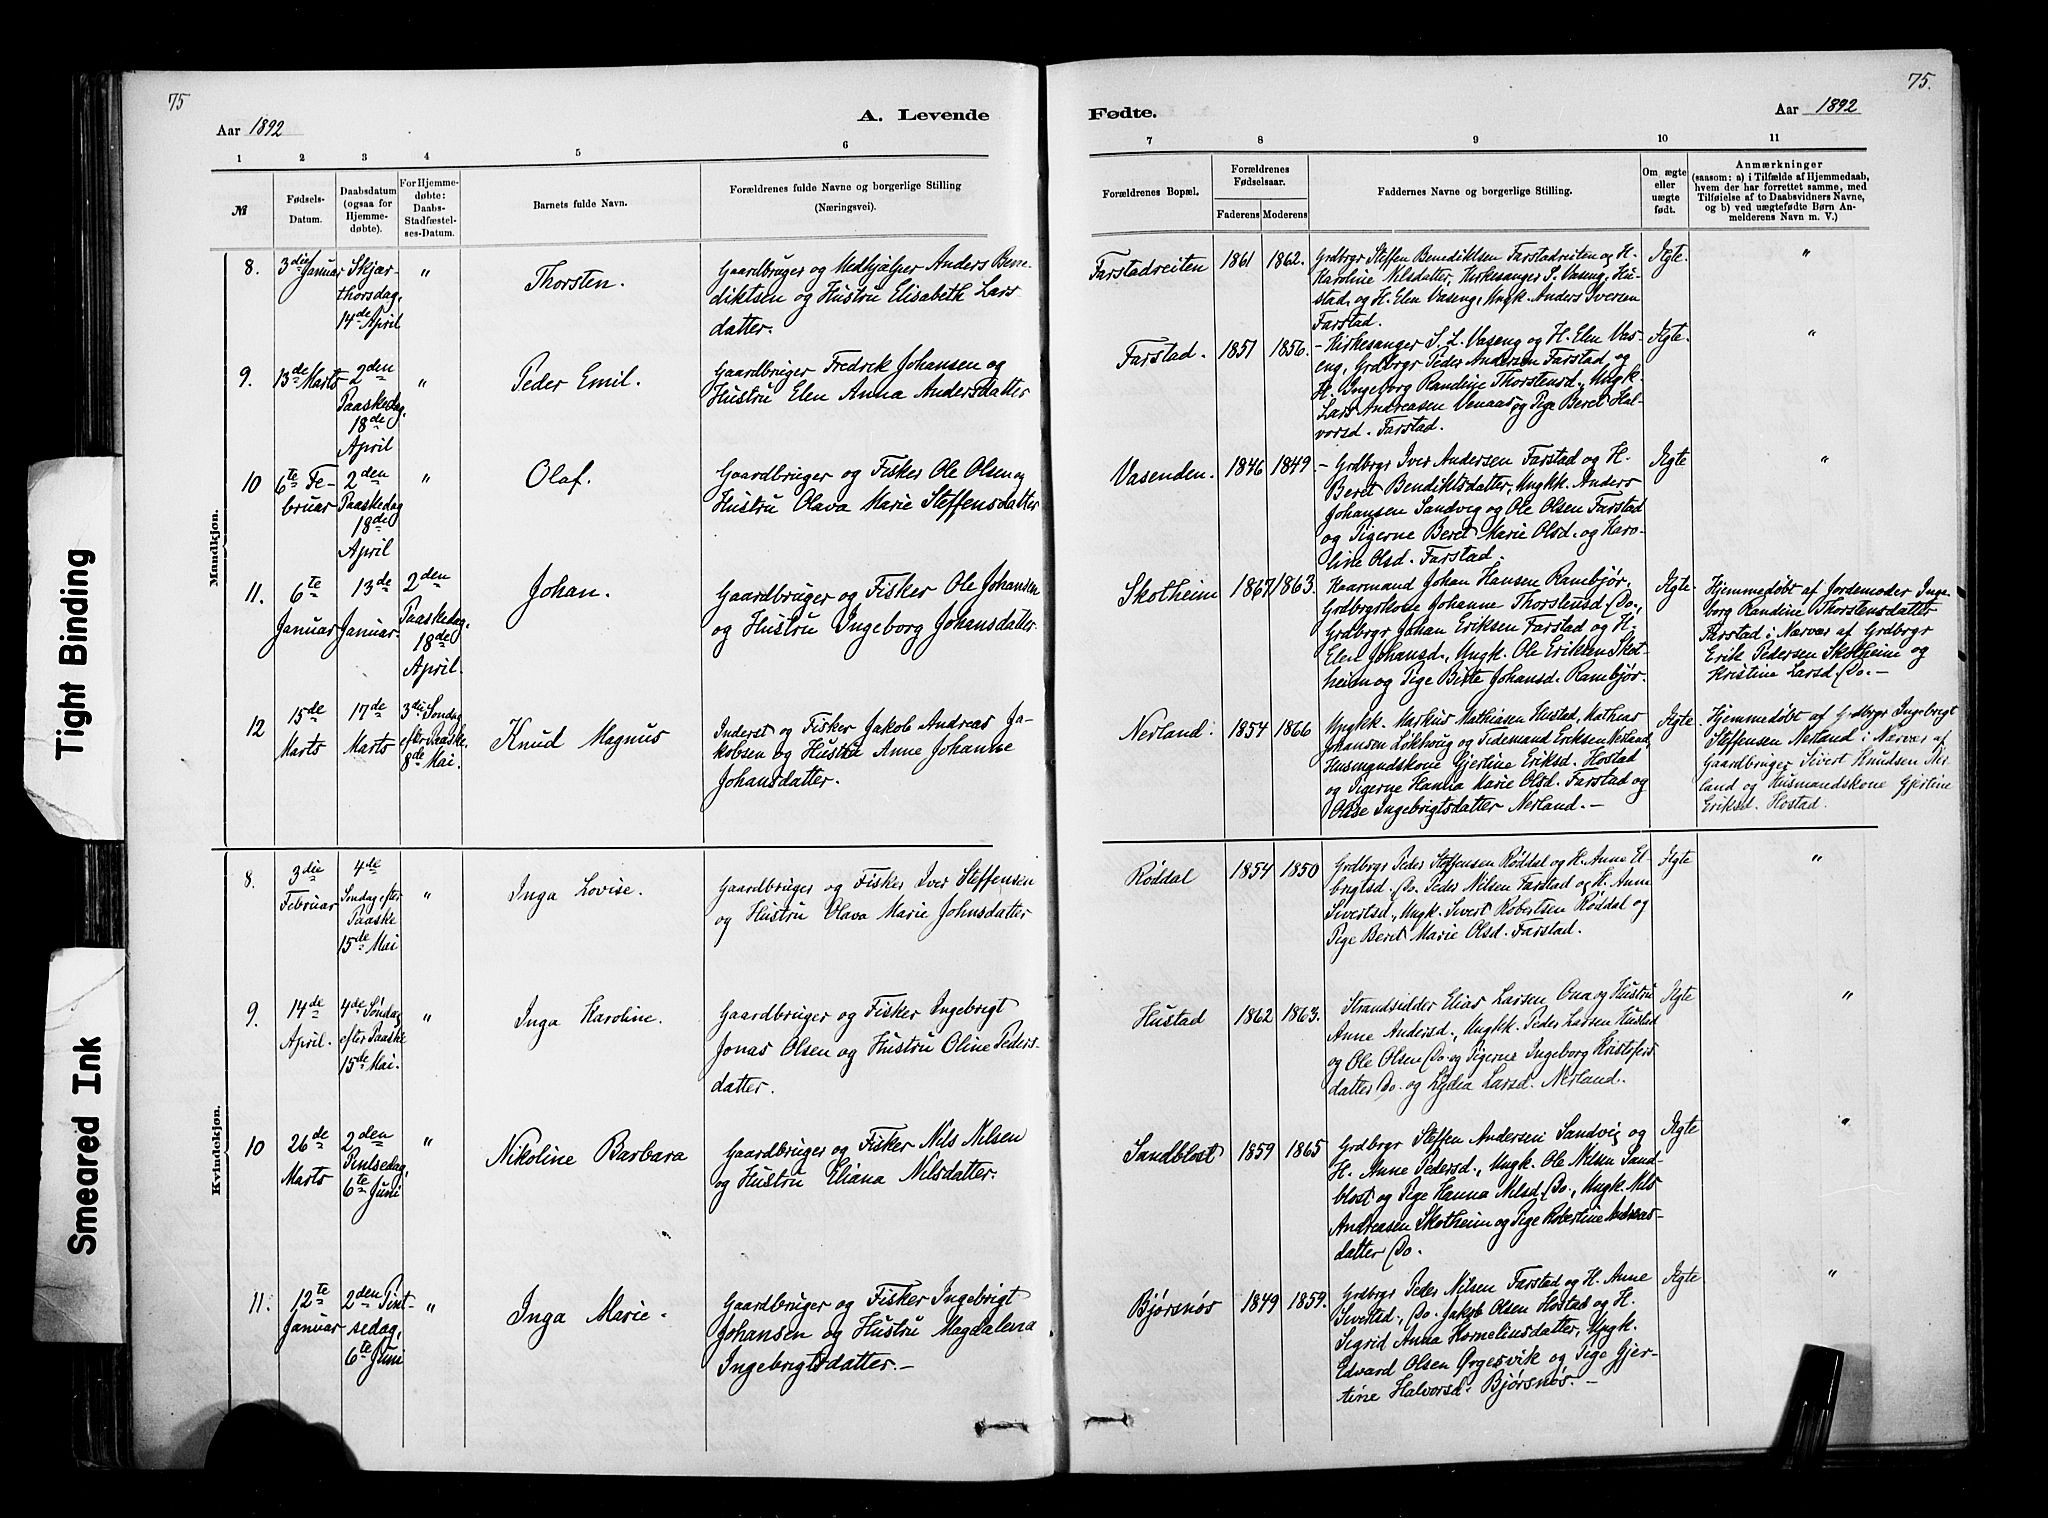 75
Aar 1892
A. Levende
1 2 3 4 5 6
№
Fødsels-
Datum.
Daabsdatum
(ogsaa for
Hjemme-
døbte).
For Hjemme-
døbte:
Daabs-
Stadfæstel-
ses-Datum.
Barnets fulde Navn.
Forældrenes fulde Navne og borgerlige Stilling
(Næringsvei).
Mandkjøn.
8.
3die Januar
Skjær-
thorsdag,
14de April
"
Thorsten.
Gaardbruger og Medhjælper Anders Bene-
diktsen og Hustru Elisabeth Lars-
datter.
9.
13de Marts
2den
Paaskedag,
18de
April
"
Peder Emil.
Gaardbruger Fredrik Johansen og
Hustru Elen Anna Andersdatter
10
6te Fe-
bruar
2den
Paaskedag
18de
April
"
Olaf.
Gaardbruger og Fisker Ole Olsen og
Hustru Olava Marie Steffensdatter
11.
6te
Januar
13de
Januar.
2den
Paaskedag,
18de
April.
Johan.
Gaardbruger og Fisker Ole Johansen
og Hustru Ingeborg Johansdatter.
12
15de
Marts
17de
Marts
3die Søndag
efter Paaske
8de Mai.
Knud Magnus
Inderst og Fisker Jakob Andreas Ja-
kobsen og Hustru Anne Johanne
Johansdatter.
Kvindekjøn.
8.
3die
Februar
4de
Søndag efter
Paaske
15de Mai
"
Inga Lovise.
Gaardbruger og Fisker Iver Steffensen
og Hustru Olava Marie Johnsdatter
9.
14de
April.
4de Søndag
efter Paaske
15de Mai.
"
Inga Karoline.
Gaardbruger og Fisker Ingebrigt
Jonas Olsen og Hustru Oline Peders-
datter.
10
26de
Marts
2den
Pintsedag,
6te Juni
"
Nikoline Barbara
Gaardbruger og Fisker Nils Nilsen
og Hustru Eliana Nilsdatter.
11.
12te
Januar
2den Pint-
sedag,
6te Juni
"
Inga Marie.
Gaardbruger og Fisker Ingebrigt
Johansen og Hustru Magdalena
Ingebrigtsdatter.-
75.
Fødte.
Aar 1892
7 8 9 10 11
Forældrenes Bopæl.
Forældrenes
Fødselsaar.
Faderens Moderens
Faddernes Navne og borgerlige Stilling.
Om ægte
eller
uægte
født.
Anmærkninger
(saasom: a) i Tilfælde af Hjemmedaab,
hvem der har forrettet samme, med
Tilføielse af to Daabsvidners Navne,
og b) ved uægtefødte Børn An-
melderens Navn m. V.)
Farstadreiten
1861
1862.
Grdbrgr Steffen Bendiktsen Farstadreiten og H.
Karoline Nilsdatter, Kirkesanger S. Vaseng, Hu-
stad, og H. Elen Vaseng, Ungk. Anders Iversen
Farstad.
Ægte.
"
Farstad.
1851
1856.
- Kirkesanger S. L. Vaseng og H. Elen Vas-
eng, Grdbrgr Peder Andersen Farstad, og
H. Ingeborg Randine Thorstensd., Ungk.
Lars Andreasen Venaas, og Pige Beret Hal-
vorsd. Farstad.
Ægte.
"
Vasenden.
1846
1849.
- Grdbrgr Iver Andersen Farstad og H.
Beret Bendiktsdatter, Ungkk. Anders
Johansen Sandvig og Ole Olsen Farstad
og Pigerne Beret Marie Olsd. og Karo-
line Olsd. Farstad.
Ægte
"
Skotheim
1867
1863.
Kaarmand Johan Hansen Rambjør,
Grdbrgrskone Johanne Thorstensd. Do.,
Grdbrgr Johan Eriksen Farstad og H.
Elen Johansd., Ungk. Ole Eriksen Skot-
heim og Pige Berte Johansd. Rambjør.
Ægte
Hjemmedøbt af Jordemoder Inge-
borg Randine Thorstensdatter
Farstad i Nærvær af Grdbrgr
Erik Pedersen Skotheim og
Kristine Larsd. Do.-
Nerland.
1854
1866
Ungkk. Markus Mathiasen Hustad, Mathias
Johansen Løkhaug og Tidemand Eriksen Nerland,
Husmandskone Gjertine Eriksd. Hostad
og Pigerne Hanna Marie Olsd. Farstad og
Olise Ingebrigtsdatter Nerland.-
Ægte
Hjemmedøbt af Grdbrgr Ingebrigt
Steffensen Nerland i Nærvær af
Gaardbruger Sivert Knudsen Ner-
land og Husmandskone Gjertine
Eriksd. Hostad.
Røddal
1854
1850
Grdbrgr Peder Steffensen Røddal og H. Anne El-
brigtsd., Do. Peder Nilsen Farstad og H. Anne
Sivertsd., Ungk. Sivert Robertsen Røddal og
Pige Beret Marie Olsd. Farstad.
Ægte
"
Hustad
1862
1863.
Strandsidder Elias Larsen Ona og Hustru
Anne Andersd., Ungkk. Peder Larsen Hustad
og Ole Olsen Do. og Pigerne Ingeborg Kristofers-
datter Do. og Lydia Larsd. Nerland.
Ægte
"
Sandblost
1859
1865
Grdbrgr Steffen Andersen Sandvig og
H. Anne Pedersd., Ungk. Ole Nilsen Sand-
blost og Pige Hanna Nilsd. Do., Ungk. Nils
Andreasen Skotheim og Pige Robertine Andreas-
datter Do.
Ægte
"
Bjørsnøs
1849
1859.
Grdbrgr Peder Nilsen Farstad og H. Anne
Sivertsd., Do. Jakob Olsen Hostad og H.
Sigrid Anna Korneliusdatter, Ungk.
Edvard Olsen Ørgesvik og Pige Gjer-
tine Halvorsd. Bjørsnøs.-
Ægte
"
Tight Binding
Smeared Ink